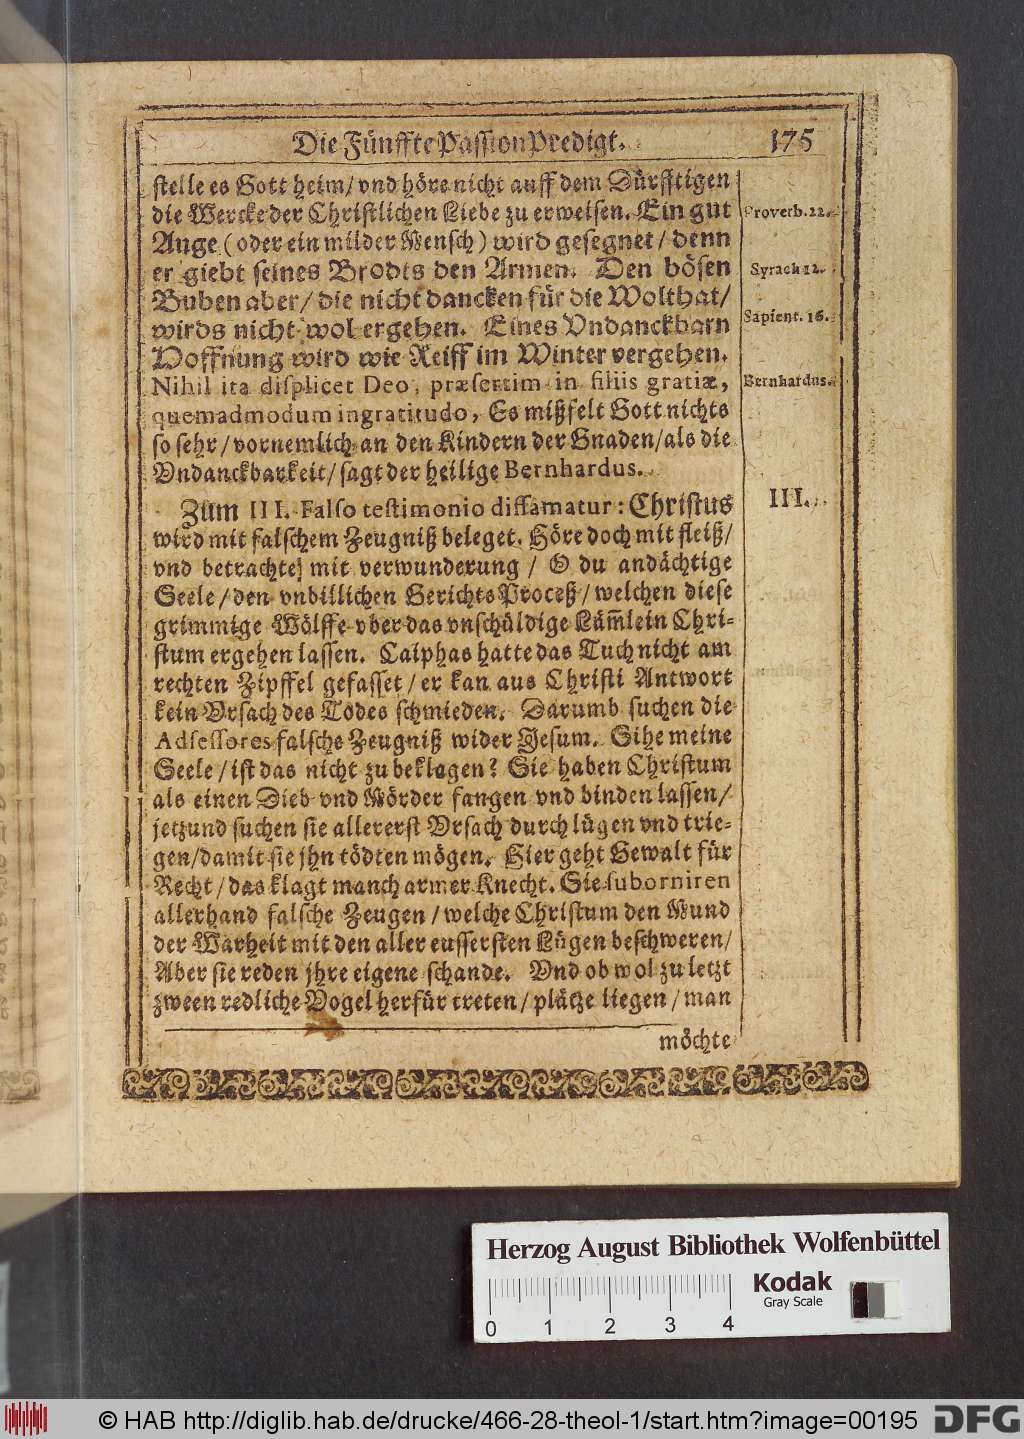 Die Fünffte Passion Predigt. 175
stelle es Gott heim/ vnd höre nicht auff dem Dürfftigen
die Wercke der Christlichen Liebe zu erweisen. Ein gut
Proverb. 22.
Auge (oder ein milder Mensch) wird gesegnet/ denn
er giebt seines Brodts den Armen. Den bösen
Syrach 12.
Buben aber/ die nicht dancken für die Wolthat/
wirds nicht wol ergehen. Eines Vndanckbarn
Sapient. 16.
Hoffnung wird wie Reiff im Winter vergehen.
Nihil ita displicet Deo, præsertim in filiis gratiæ,
Bernhardus.
quemadmodum ingratitudo, Es mißfelt Gott nichts
so sehr/ vornemlich an den Kindern der Gnaden/ als die
Vndanckbarkeit/ sagt der heilige Bernhardus.
Zum III. Falso testimonio diffamatur: Christus
III.
wird mit falschem Zeugniß beleget. Höre doch mit fleiß/
vnd betrachte mit verwunderung / O du andächtige
Seele/ den vnbillichen Gerichts Proceß/ welchen diese
grimmige Wölffe vber das vnschüldige Läm̃lein Chri-
stum ergehen lassen. Caiphas hatte das Tuch nicht am
rechten Zipffel gefasset/ er kan aus Christi Antwort
kein Vrsach des Todes schmieden. Darumb suchen die
Adsessores falsche Zeugniß wider Jesum. Sihe meine
Seele/ ist das nicht zu beklagen? Sie haben Christum
als einen Dieb vnd Mörder fangen vnd binden lassen/
jetzund suchen sie allererst Vrsach durch lügen vnd trie-
gen/ damit sie jhn tödten mögen. Hier geht Gewalt für
Recht/ das klagt manch armer Knecht. Sie suborniren
allerhand falsche Zeugen/ welche Christum den Mund
der Warheit mit den aller eussersten Lügen beschweren/
Aber sie reden jhre eigene schande. Vnd ob wol zu letzt
zween redliche Vogel herfür treten/ plätze liegen/ man
möchte
Herzog August Bibliothek Wolfenbüttel
Kodak
Gray Scale
0 1 2 3 4
© HAB http://diglib.hab.de/drucke/466-28-theol-1/start.htm?image=00195 DFG